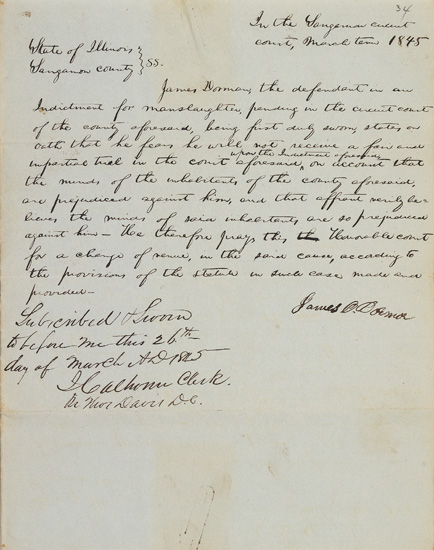 34
In the Sangamon circuit
court, March term 1845
State of Illinois }
Sangamon county } SS.
James Dorman, the defendant in an
Indictment for manslaughter, pending in the circuit court
of the county aforesaid, being first duly sworn, states on
oath that he fears he will not receive a fair and
upon the Indictment aforesaid
impartial trial in the court aforesaid, on account that
the minds of the inhabitants of the county aforesaid,
are prejudiced against him, and that affiant verily be-
lieves the minds of said inhabitants are so prejudiced
against him — He therefore prays this Honorable court
for a change of venue, in the said cause, according to
the provisions of the statute in such case made and
provided —
James O. Dormon
Subscribed & Sworn
to before me this 26th
day of March AD 1845
J Calhoun Clerk.
Thos Davis D.C.